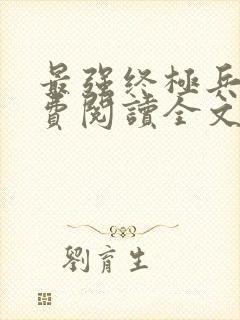 最強終極兵
費閱讀全文
劉育生